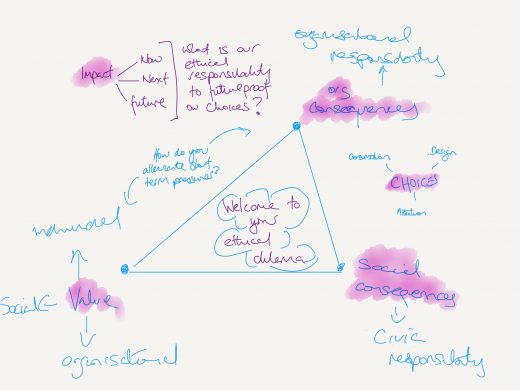 Impact
Now
Next
future
what is our
ethical
responsibility
to futureproof
our choices?
organisational
responsibility
org
consequences
How do you
short
term pressures?
Design
CHOICES
Attention
Welcome to
your
ethical
dilema
individual
Social
Value
organisational
Social
consequences
Civic
responsibility